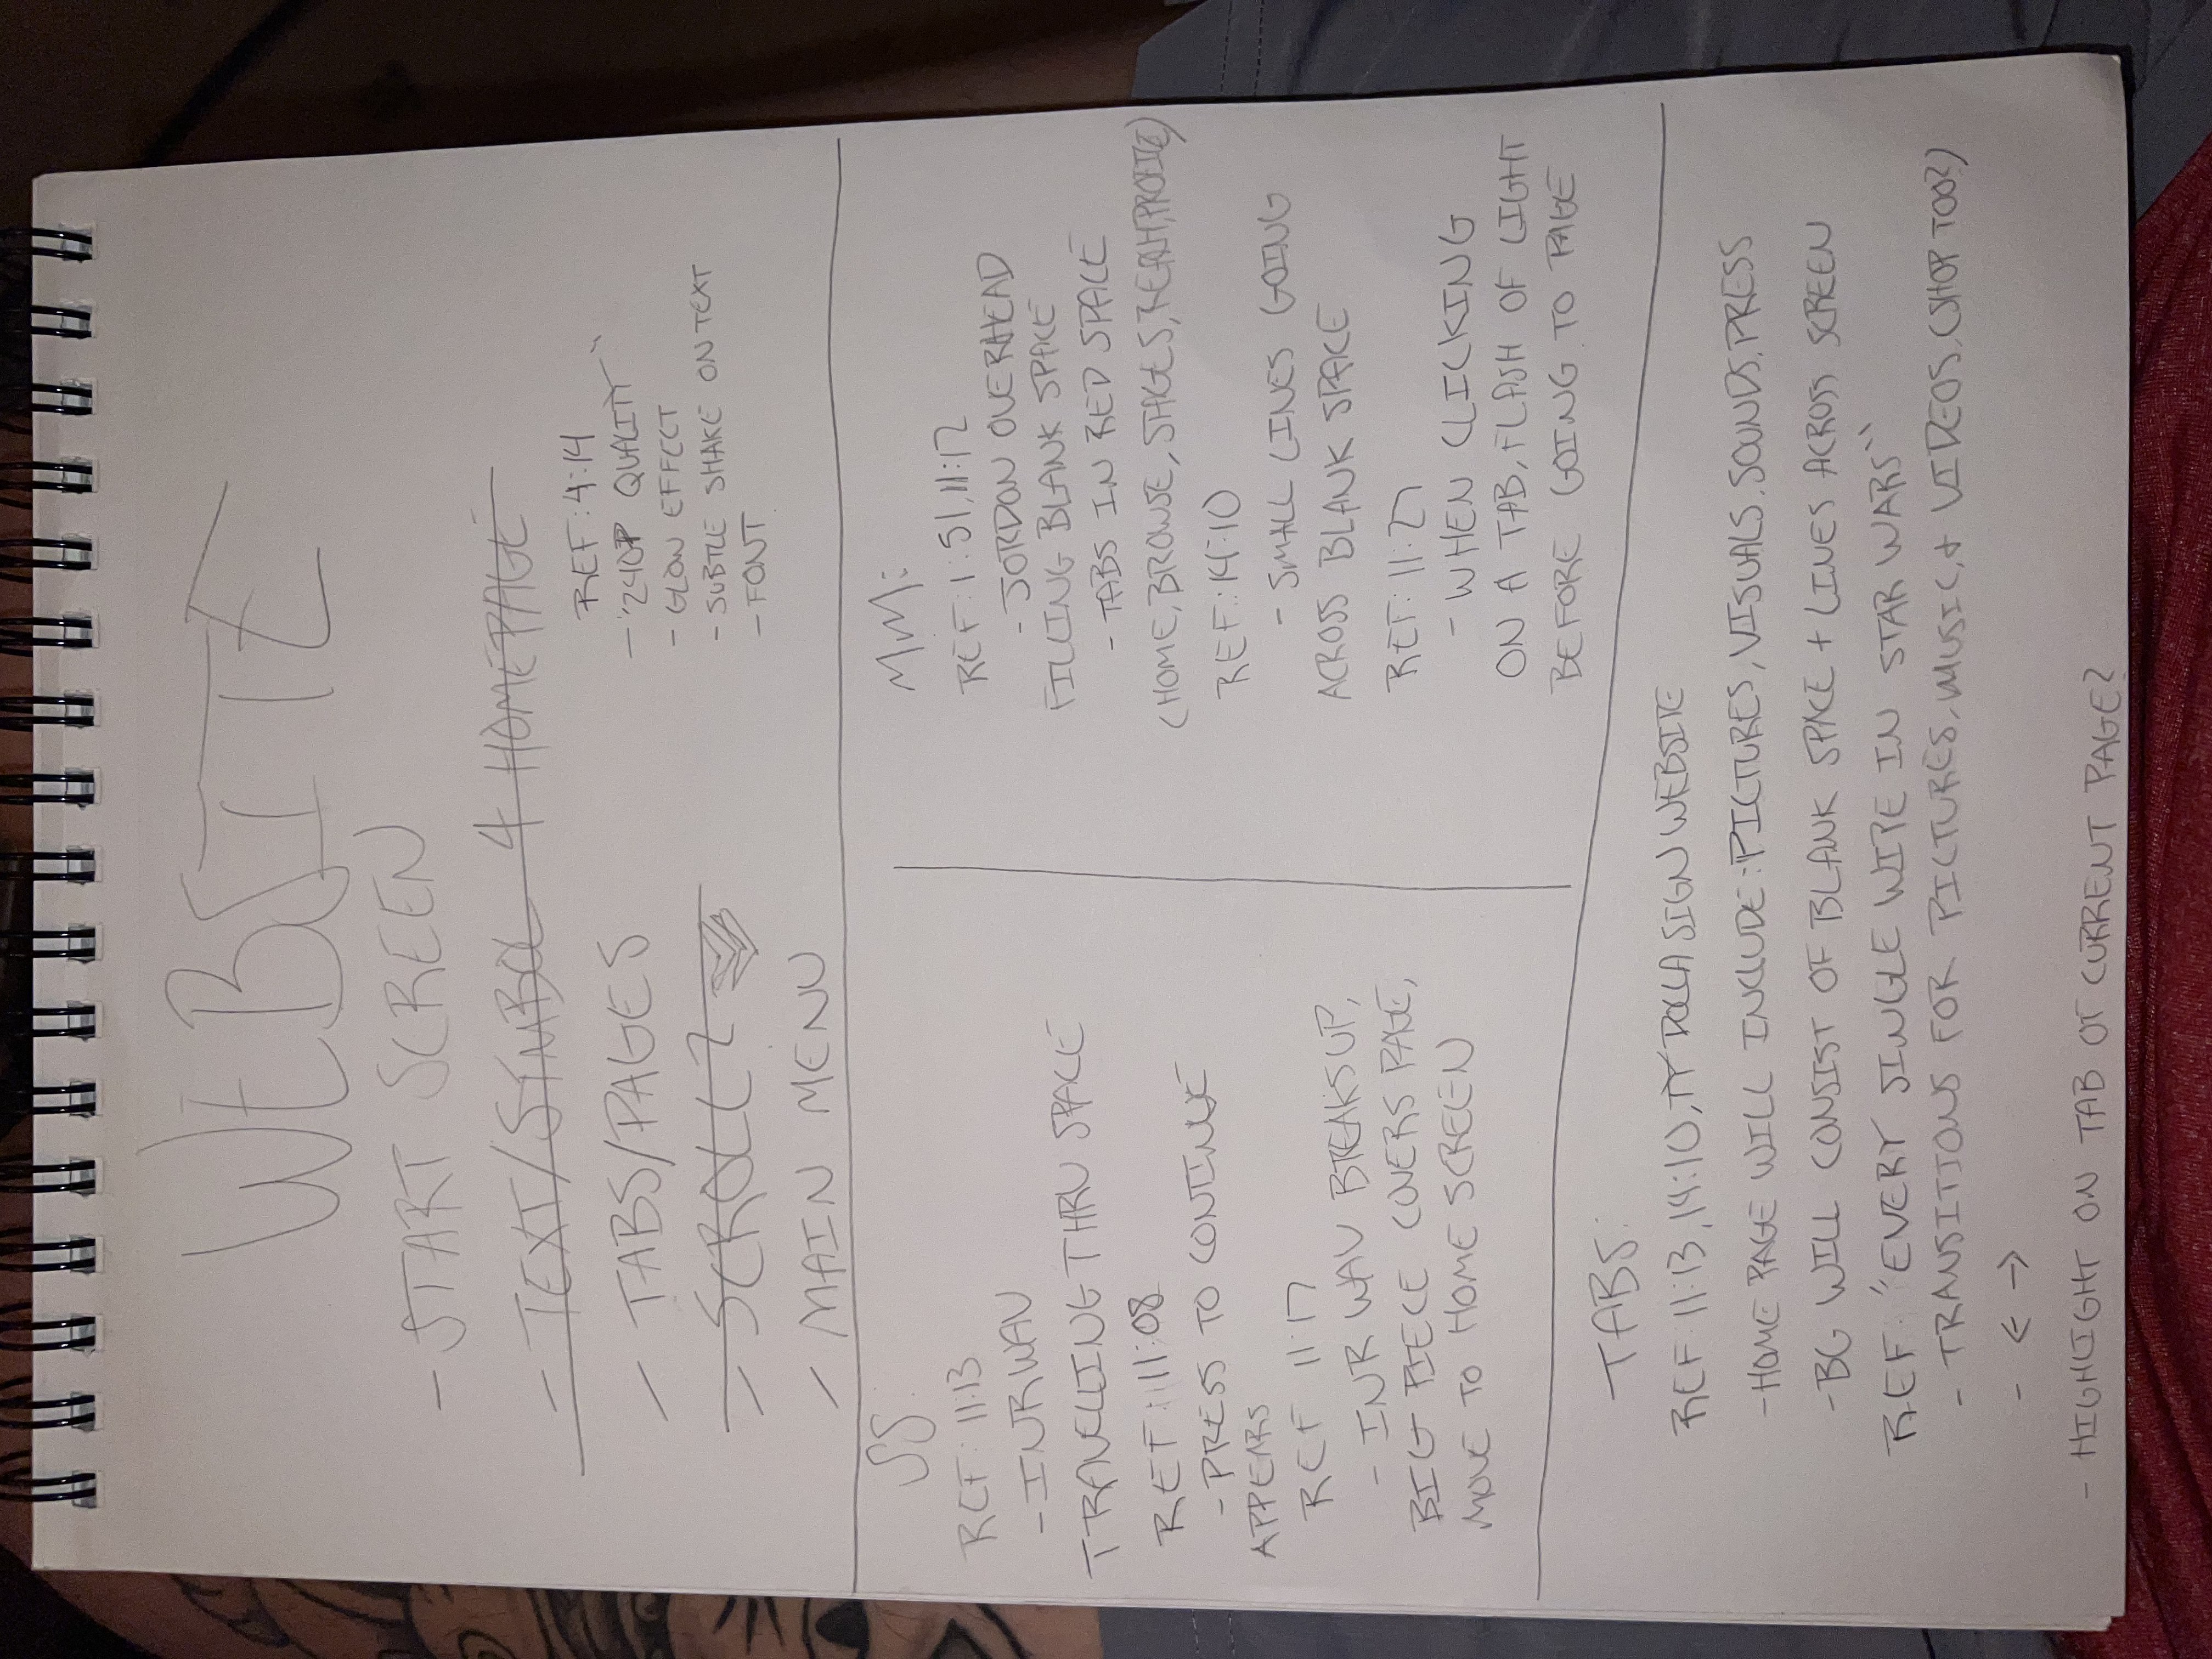 WEBSITE
- START SCREEN
- TEXT/SYMBOL 4 HOMEPAGE
- TABS/PAGES
- SCROLL?
- MAIN MENU
REF: 4:14
- "240P QUALITY"
- GLOW EFFECT
- SUBTLE SHAKE ON TEXT
- FONT
SS:
REF: 11:13
- INR WAV
TRAVELLING THRU SPACE
REF: 11:08
- PRESS TO CONTINUE
APPEARS
REF 11:17
- INR WAV BREAKS UP,
BIG PIECE COVERS PAGE,
MOVE TO HOME SCREEN
MM:
REF: 1:51, 11:12
- JORDON OVERHEAD
FILLING BLANK SPACE
- TABS IN RED SPACE
(HOME, BROWSE, STAGES, PROFILE)
REF: 14:10
- SMALL LINES GOING
ACROSS BLANK SPACE
REF: 11:27
- WHEN CLICKING
ON A TAB, FLASH OF LIGHT
BEFORE GOING TO PAGE
TABS:
REF: 11:13, 14:10, TY DOLLA SIGN WEBSITE
- HOME PAGE WILL INCLUDE: PICTURES, VISUALS, SOUNDS, PRESS
- BG WILL CONSIST OF BLANK SPACE + LINES ACROSS SCREEN
REF: "EVERY SINGLE WIPE IN STAR WARS"
- TRANSITIONS FOR PICTURES, MUSIC, + VIDEOS, (SHOP TOO?)
- ← →
- HIGHLIGHT ON TAB OF CURRENT PAGE?